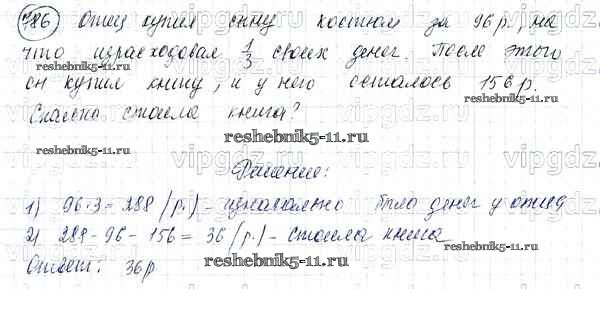 786 Отец купил сыну костюм за 96 р., на
что израсходовал 1/3 своих денег. После этого
он купил книгу, и у него осталось 156 р.
Сколько стоила книга?
reshebnik5-11.ru
reshebnik5-11.ru
reshebnik5-11.ru
vipgdz
Решение:
1) 96·3=288 (р.) – изначально было денег у отца
2) 288-96-156=36 (р.) – стоила книга
reshebnik5-11.ru
Ответ: 36р
reshebnik5-11.ru